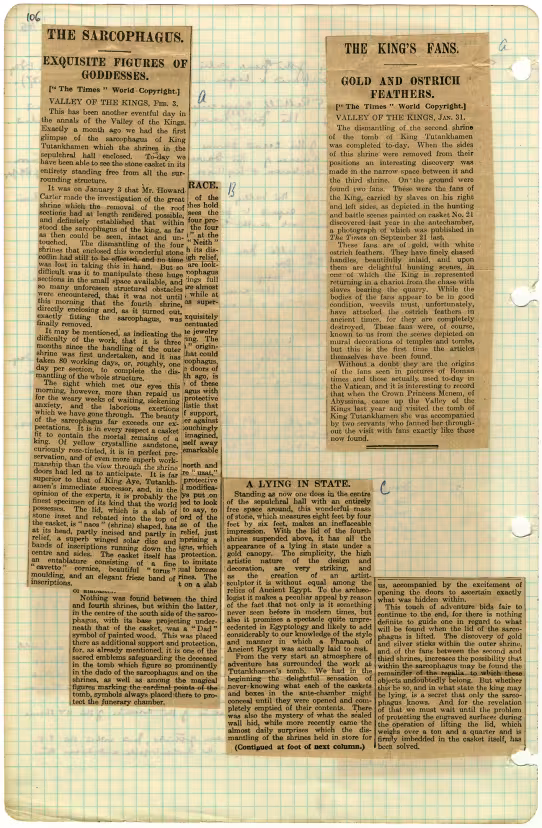 106
THE SARCOPHAGUS.
EXQUISITE FIGURES OF
GODDESSES.
["The Times" World Copyright.]
VALLEY OF THE KINGS, FEB. 3.
This has been another eventful day in
the annals of the Valley of the Kings.
Exactly a month ago we had the first
glimpse of the sarcophagus of King
Tutankhamen which the shrines in the
sepulshral hall enclosed. To-day we
have been able to see the stone casket in its
entirety standing free from all the sur-
rounding structure.
It was on January 3 that Mr. Howard
Carter made the investigation of the great
shrine which the removal of the roof
sections had at length rendered possible,
and definitely established that within
stood the sarcophagus of the king, as far
as then could be seen, intact and un-
touched. The dismantling of the four
shrines that enclosed this wonderful stone
coffin had still to be effected, and no time
was lost in taking this in hand. But so
difficult was it to manipulate these huge
sections in the small space available, and
so many unforeseen structural obstacles
were encountered, that it was not until
this morning that the fourth shrine,
directly enclosing and, as it turned out,
exactly fitting the sarcophagus, was
finally removed.
It may be mentioned, as indicating the
difficulty of the work, that it is three
months since the handling of the outer
shrine was first undertaken, and it has
taken 80 working days, or, roughly, one
day per section, to complete the dis-
mantling of the whole structure.
The sight which met our eyes this
morning, however, more than repaid us
for the weary weeks of waiting, sickening
anxiety, and the laborious exertions
which we have gone through. The beauty
of the sarcophagus far exceeds our ex-
pectations. It is in every respect a casket
fit to contain the mortal remains of a
king. Of yellow crystalline sandstone,
curiously rose-tinted, it is in perfect pre-
servation, and of even more superb work-
manship than the view through the shrine
doors had led us to anticipate. It is far
superior to that of King Aye, Tutankh-
amen's immediate successor, and, in the
opinion of the experts, it is probably the
finest specimen of its kind that the world
possesses. The lid, which is a slab of
stone inset and rebated into the top of
the casket, is "naos" (shrine) shaped, has
at its head, partly incised and partly in
relief, a superb winged solar disc and
bands of inscriptions running down the
centre and sides. The casket itself has
an entablature consisting of a fine
"cavetto" cornice, beautiful "torus"
moulding, and an elegant frieze band of
inscriptions.
a
RACE.
of the
thes hold
sses the
four pro-
the four
" at the
"Neith"
h its dis-
igh relief,
are look-
ophagus
ings full
are almost
, while at
as super-
xquisitely
entuated
e jewelry
ng. The
" origin-
has could
cophagus,
e doors of
th ago, is
of these
agus with
protective
listic that
f support,
er against
ouchingly
imagined,
self away
emarkable
north and
re "usat,"
protective
modifica-
ys put on
ed to look
to say, to
ed of the
se of the
relief, just
prising a
gus, which
protection.
to imitate
ual bronze
rines. The
t on a slab
B
Nothing was found between the third
and fourth shrines, but within the latter,
in the centre of the south side of the sarco-
phagus, with its base projecting under-
neath that of the casket, was a "Dad"
symbol of painted wood. This was placed
there as additional support and protection,
for, as already mentioned, it is one of the
sacred emblems safeguarding the deceased
in the tomb which figure so prominently
in the dado of the sarcophagus and on the
shrines, as well as among the magical
figures marking the cardinal points of the
tomb, symbols always placed there to pro-
tect the funerary chamber.
THE KING'S FANS.
GOLD AND OSTRICH
FEATHERS.
["The Times" World Copyright.]
VALLEY OF THE KINGS, JAN. 31.
The dismantling of the second shrine
of the tomb of King Tutankhamen
was completed to-day. When the sides
of this shrine were removed from their
positions an interesting discovery was
made in the narrow space between it and
the third shrine. On the ground were
found two fans. These were the fans of
the King, carried by slaves on his right
and left sides, as depicted in the hunting
and battle scenes painted on casket No. 21
discovered last year in the antechamber,
a photograph of which was published in
The Times on September 21 last.
These fans are of gold, with white
ostrich feathers. They have finely chased
handles, beautifully inlaid, and upon
them are delightful hunting scenes, in
one of which the King is represented
returning in a chariot from the chase with
slaves bearing the quarry. While the
bodies of the fans appear to be in good
condition, weevils must, unfortunately,
have attacked the ostrich feathers in
ancient times, for they are completely
destroyed. These fans were, of course,
known to us from the scenes depicted on
mural decorations of temples and tombs,
but this is the first time the articles
themselves have been found.
Without a doubt they are the origin
of the fans seen in pictures of Roman
times and those actually used to-day in
the Vatican, and it is interesting to record
that when the Crown Princess Monen, of
Abyssinia, came up the Valley of the
Kings last year and visited the tomb of
King Tutankhamen she was accompanied
by two servants who fanned her through-
out the visit with fans exactly like those
now found.
a
A LYING IN STATE.
Standing as now one does in the centre
of the sepulchral hall with an entirely
free space around, this wonderful mass
of stone, which measures eight feet by four
feet by six feet, makes an ineffaceable
impression. With the lid of the fourth
shrine suspended above, it has all the
appearance of a lying in state under a
gold canopy. The simplicity, the high
artistic nature of the design and
decoration, are very striking, and
as the creation of an artist-
sculptor it is without equal among the
relics of Ancient Egypt. To the archæo-
logist it makes a peculiar appeal by reason
of the fact that not only is it something
never seen before in modern times, but
also it promises a spectacle quite unpre-
cedented in Egyptology and likely to add
considerably to our knowledge of the style
and manner in which a Pharaoh of
Ancient Egypt was actually laid to rest.
From the very start an atmosphere of
adventure has surrounded the work at
Tutankhamen's tomb. We had in the
beginning the delightful sensation of
never knowing what each of the caskets
and boxes in the ante-chamber might
conceal until they were opened and com-
pletely emptied of their contents. There
was also the mystery of what the sealed
wall hid, while more recently came the
almost daily surprises which the dis-
mantling of the shrines held in store for
(Continued at foot of next column.)
C
us, accompanied by the excitement of
opening the doors to ascertain exactly
what was hidden within.
This touch of adventure bids fair to
continue to the end, for there is nothing
definite to guide one in regard to what
will be found when the lid of the sarco-
phagus is lifted. The discovery of gold
and silver sticks within the outer shrine
and of the fans between the second and
third shrines, increases the possibility that
within the sarcophagus may be found the
remainder of the regalia to which these
objects undoubtedly belong. But whether
this be so, and in what state the king may
be lying, is a secret that only the sarco-
phagus knows. And for the revelation
of that we must wait until the problem
of protecting the engraved surfaces during
the operation of lifting the lid, which
weighs over a ton and a quarter and is
firmly imbedded in the casket itself, has
been solved.